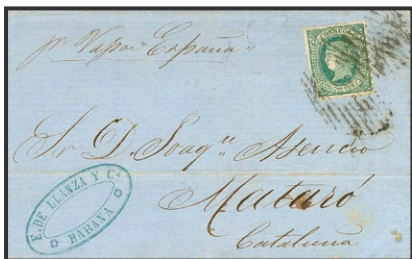 pr Vapor "España"
Sr. D. Joaqn. Asencio
Mataró
Cataluña
E. DE LLANZA Y Cª
HABANA